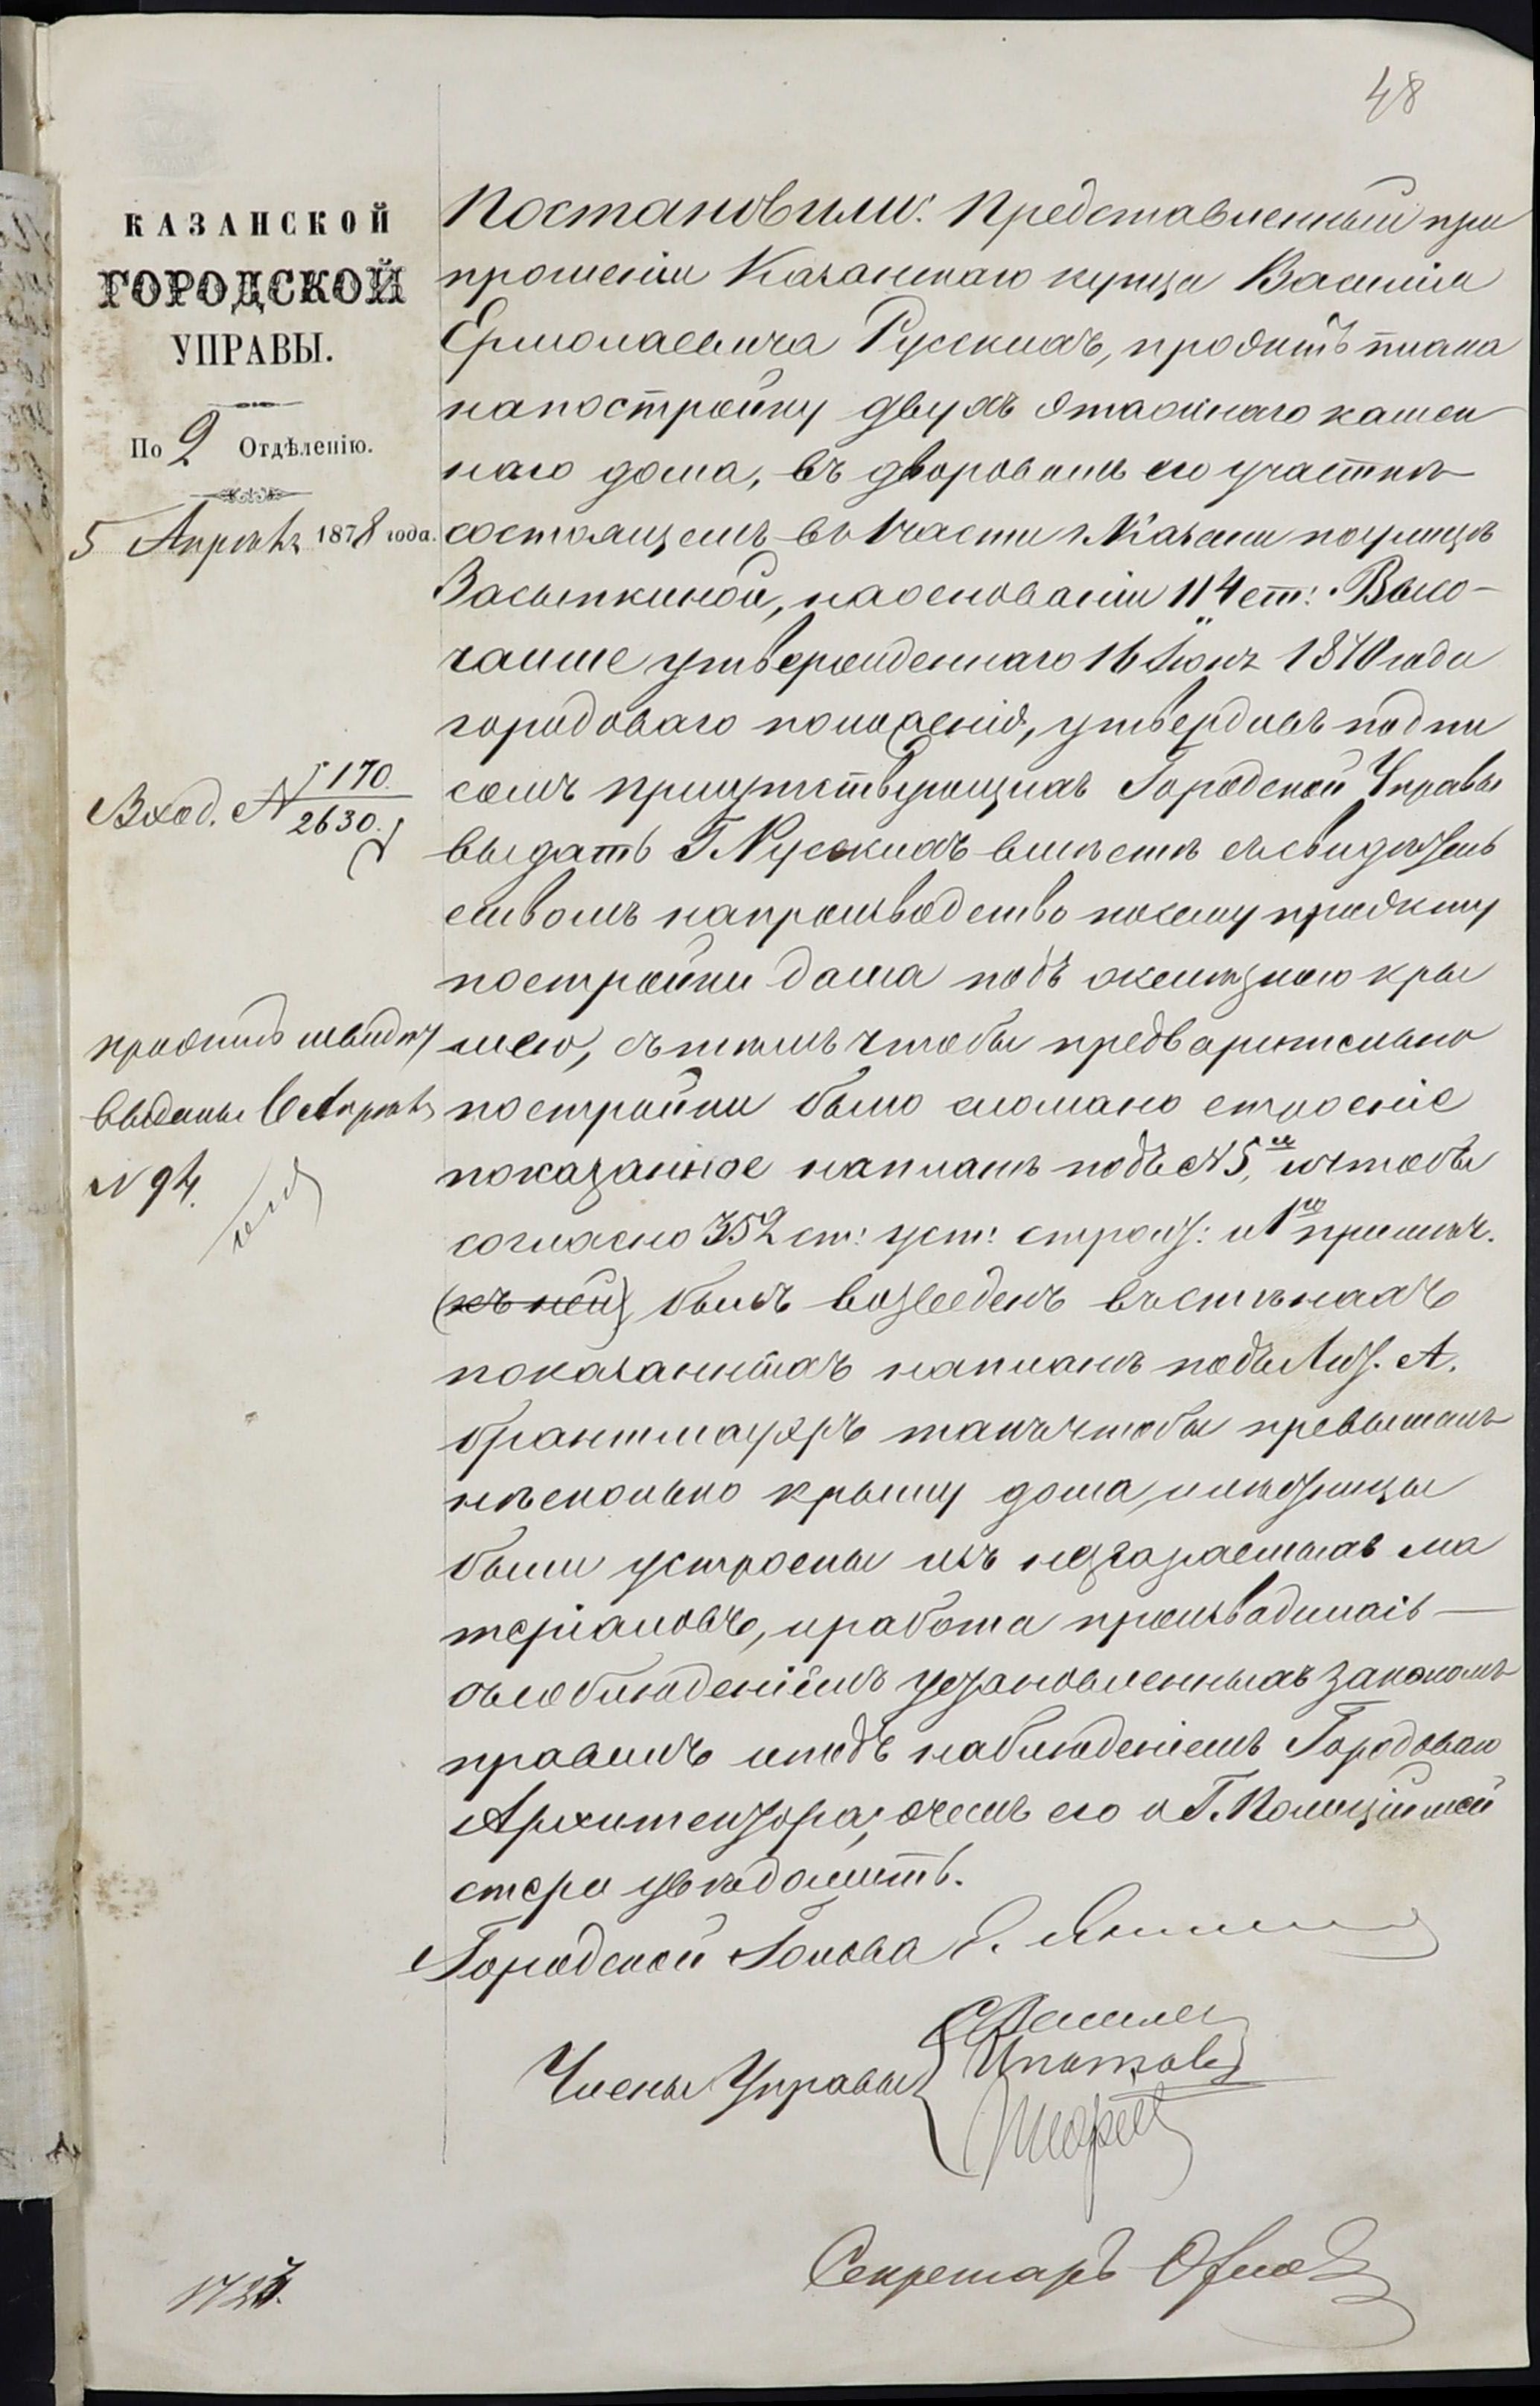 48
КАЗАНСКОЙ
ГОРОДСКОЙ
УПРАВЫ.
По 2 Отдѣленію.
5 Апрѣля 1878 года.
Вход. № 170.
2630.
проэктъ и свидѣт
выданы 6 Апрѣля
№ 94.
Постановили: Представленный при
прошеніи Казанскаго купца Василія
Ермолаевича Русскихъ, проэктъ плана
на постройку двухъ этажнаго камен
наго дома, въ дворовомъ его участкѣ
состоящемъ въ 1 части г. Казани по улицѣ
Засыпкиной, на основаніи 114 ст: Высо-
чайше утвержденнаго 16 Іюня 1870 года
городоваго положенія, утвердивъ подпи
сомъ присутствующихъ Городской Управы
выдать Г. Русскихъ вмѣстѣ съ свидѣтель
ствомъ на производство по сему проэкту
постройки дома подъ желѣзною кры
шею, съ тѣмъ чтобы предварительно
постройки было сломано строеніе
показанное на планѣ подъ № 5, и чтобы
согласно 352 ст: уст: строит: и 1го примѣч.
(къ ней) былъ возведенъ въ стѣнахъ
показанныхъ на планѣ подъ Лит. А.
брантмауэръ такъ чтобы превышалъ
нѣсколько крышу дома, и лѣстницы
были устроены изъ несгораемыхъ ма
теріаловъ, и работа производилась
съ соблюденіемъ установленныхъ закономъ
правилъ и подъ наблюденіемъ Городоваго
Архитектора; о чемъ его и Г. Полиціймей
стера увѣдомить.
Городской Голова Э. Янишев
Члены Управы
Ипатовъ
Секретарь